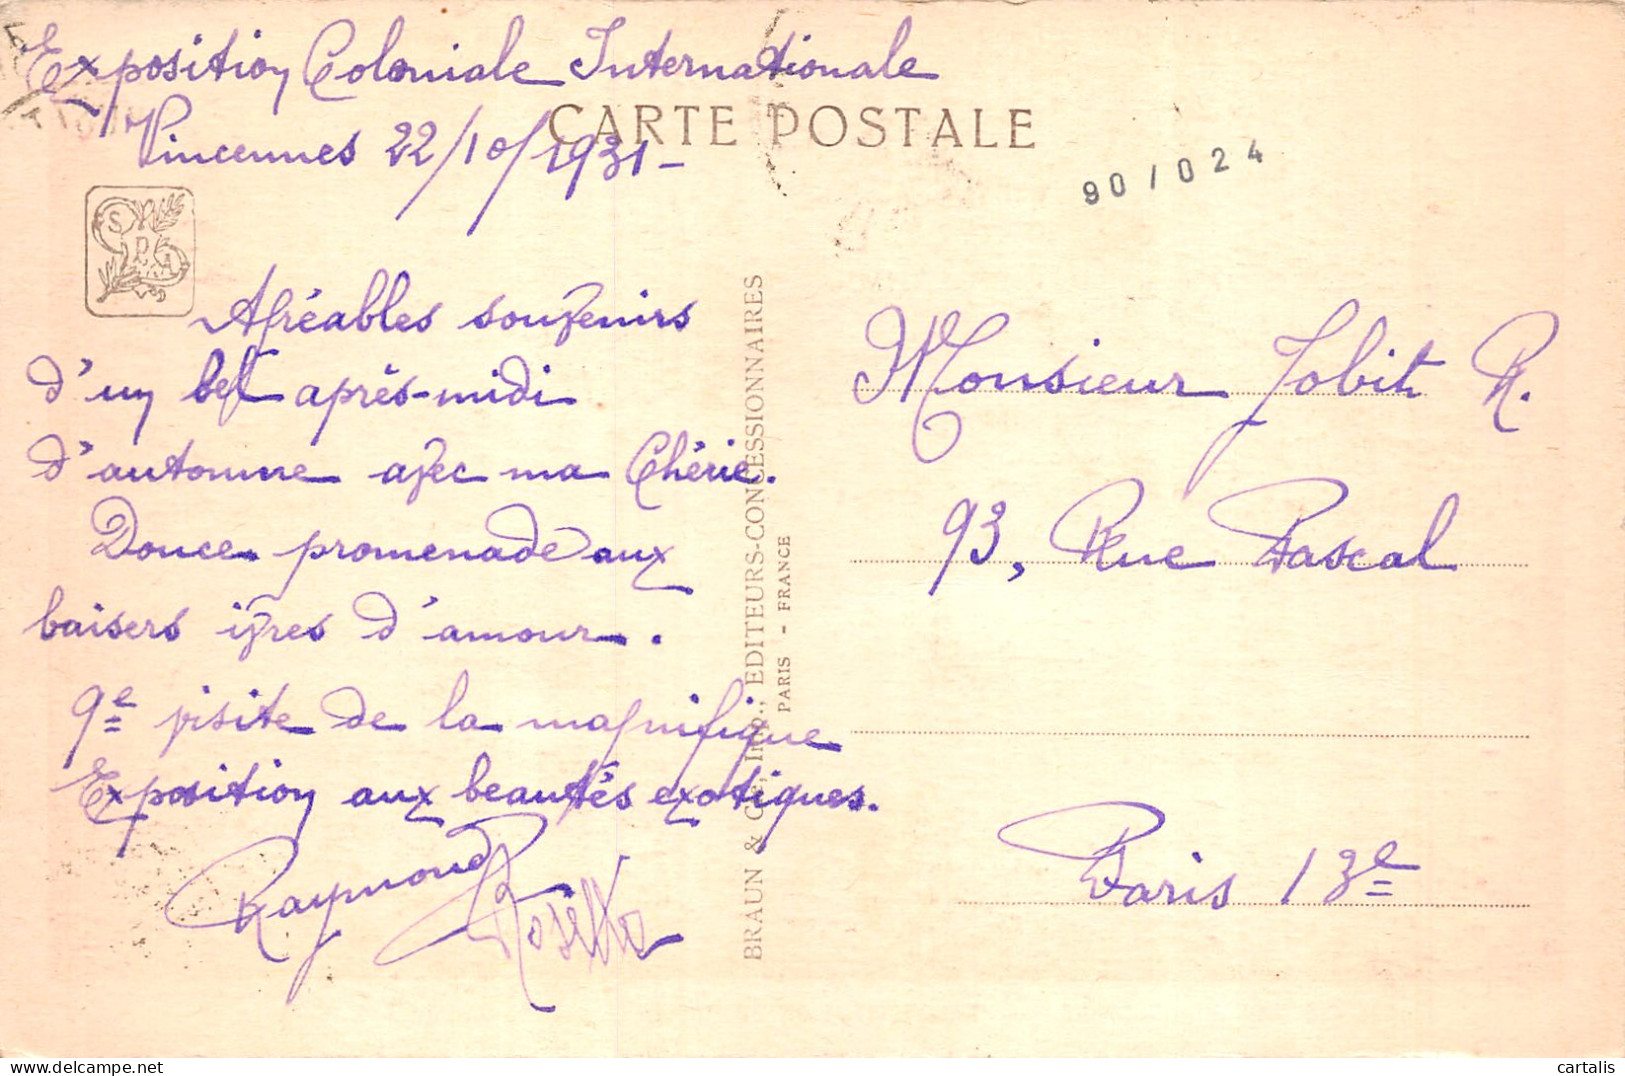 Exposition Coloniale Internationale
Vincennes 22/10/1931-
CARTE POSTALE
90/024
Agréables souvenirs
d'un bel après-midi
d'automne avec ma Chérie.
Douce promenade aux
baisers ivres d'amour.
9e visite de la magnifique
Exposition aux beautés exotiques.
Raymond
Rosetta
BRAUN & Cie, Imp., EDITEURS-CONCESSIONNAIRES
PARIS - FRANCE
Monsieur Jobit R.
93, Rue Pascal
Paris 13e
cartalis